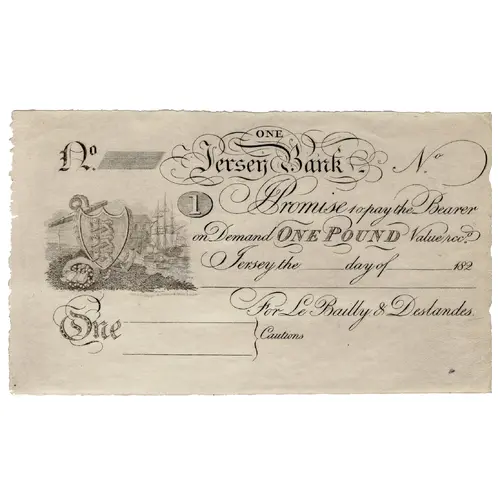 ONE
No. Jersey Bank No.
1 I Promise to pay the Bearer
on Demand ONE POUND Value recd.
Jersey the day of 182
For Le Bailly & Deslandes.
One
Cautions